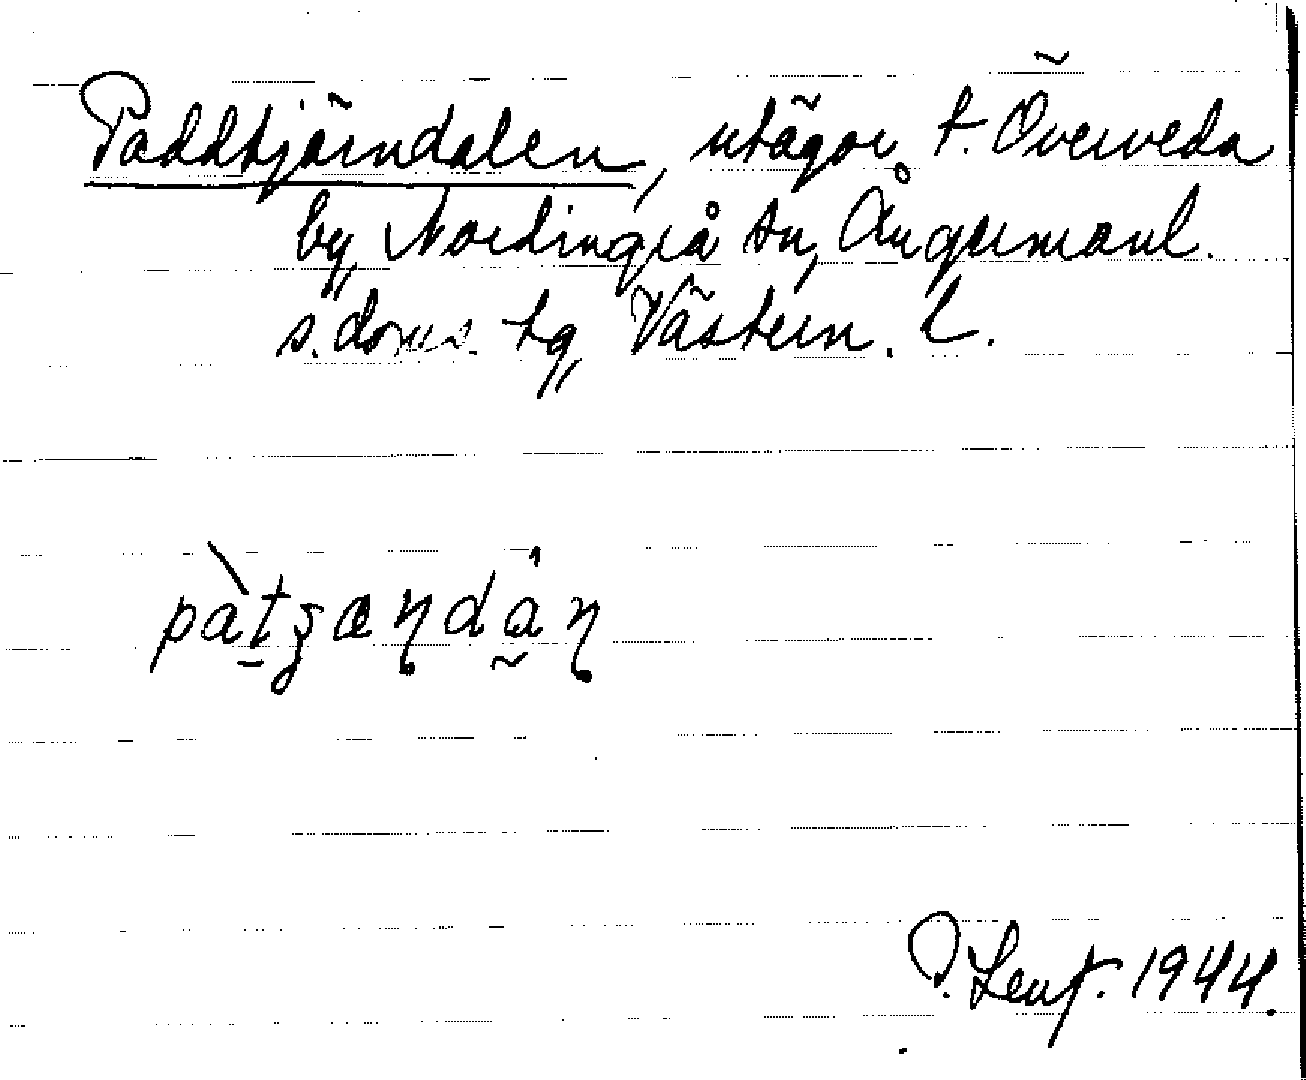 Paddtjärndalen, utägor t. Överveda
by, Nordingrå sn, Ångermanl.
s. doms. tg, Västern. l.
pàtʂæɳdàɳ
1944.